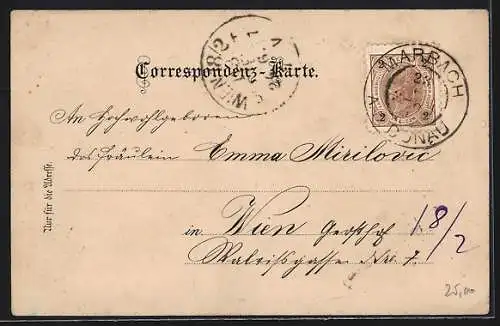 WIEN 18/2
Correspondenz-Karte.
MARBACH
A. D. DONAU
2 2
An Hochwohlgeboren
das Fräulein Emma Mirilovic
in Wien Gersthof
Nro. 7.
18/2
Nur für die Adresse.
25,00